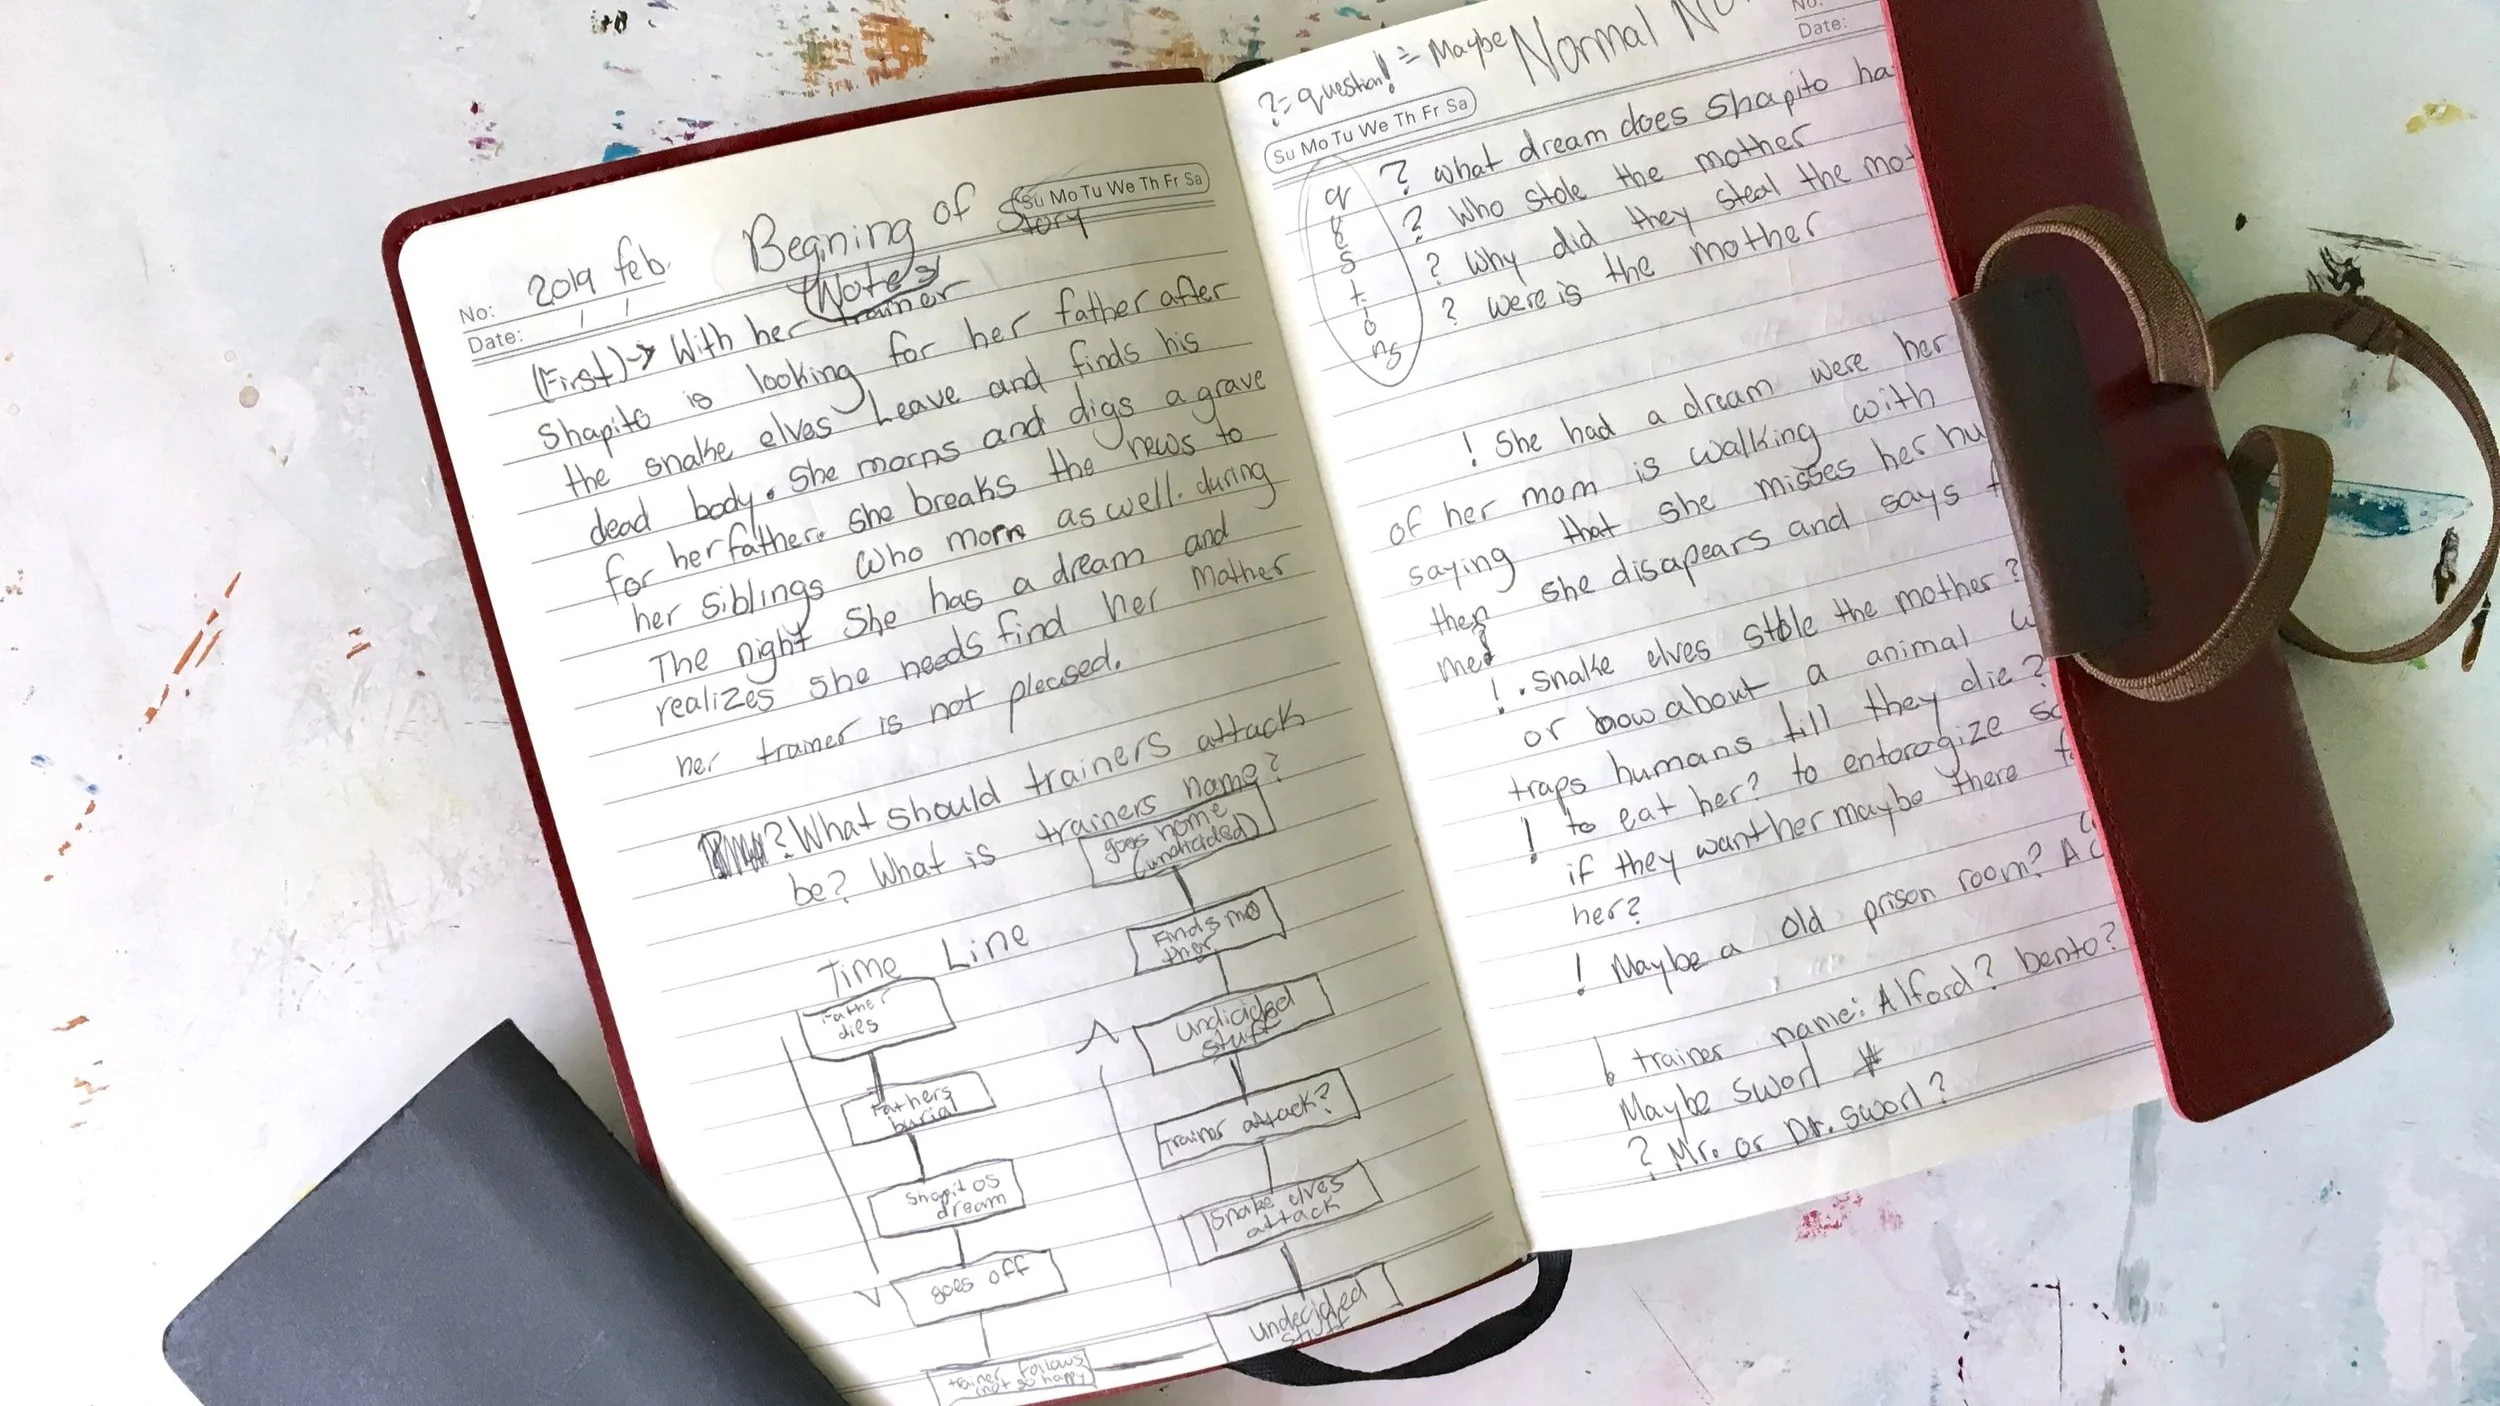 Su Mo Tu We Th Fr Sa
No: 2019 feb.
Date: / /
Begining of Story
Notes
(First)→ With her trainer
Shapito is looking for her father after
the snake elves Leave and finds his
dead body. She morns and digs a grave
for her father. she breaks the news to
her siblings who morn as well. during
The night She has a dream and
realizes she needs find her Mother
her trainer is not pleased.
? What should trainers attack
be? What is trainers name?
Time Line
Father
dies
Fathers
burial
Shapitos
dream
goes off
trainer follows
(not so happy)
undecided
stuff
Snake elves
attack
Trainer attack?
undicided
stuff
Finds mo
ther
goes home
(undicided)
?= question ! = Maybe Normal
No:
Date:
Su Mo Tu We Th Fr Sa
questions
? What dream does Shapito ha
? Who stole the mother
? Why did they steal the mot
? Were is the mother
! She had a dream were her
of her mom is walking with
saying that she misses her hu
then she disapears and says f
me!
! . Snake elves stole the mother?
or how about a animal
traps humans till they die?
! to eat her? to entorogize
if they want her maybe there
her?
! Maybe a old prison room? A
trainer name: Alford? bento?
Maybe Sworl
? Mr. or Dr. Sworl?